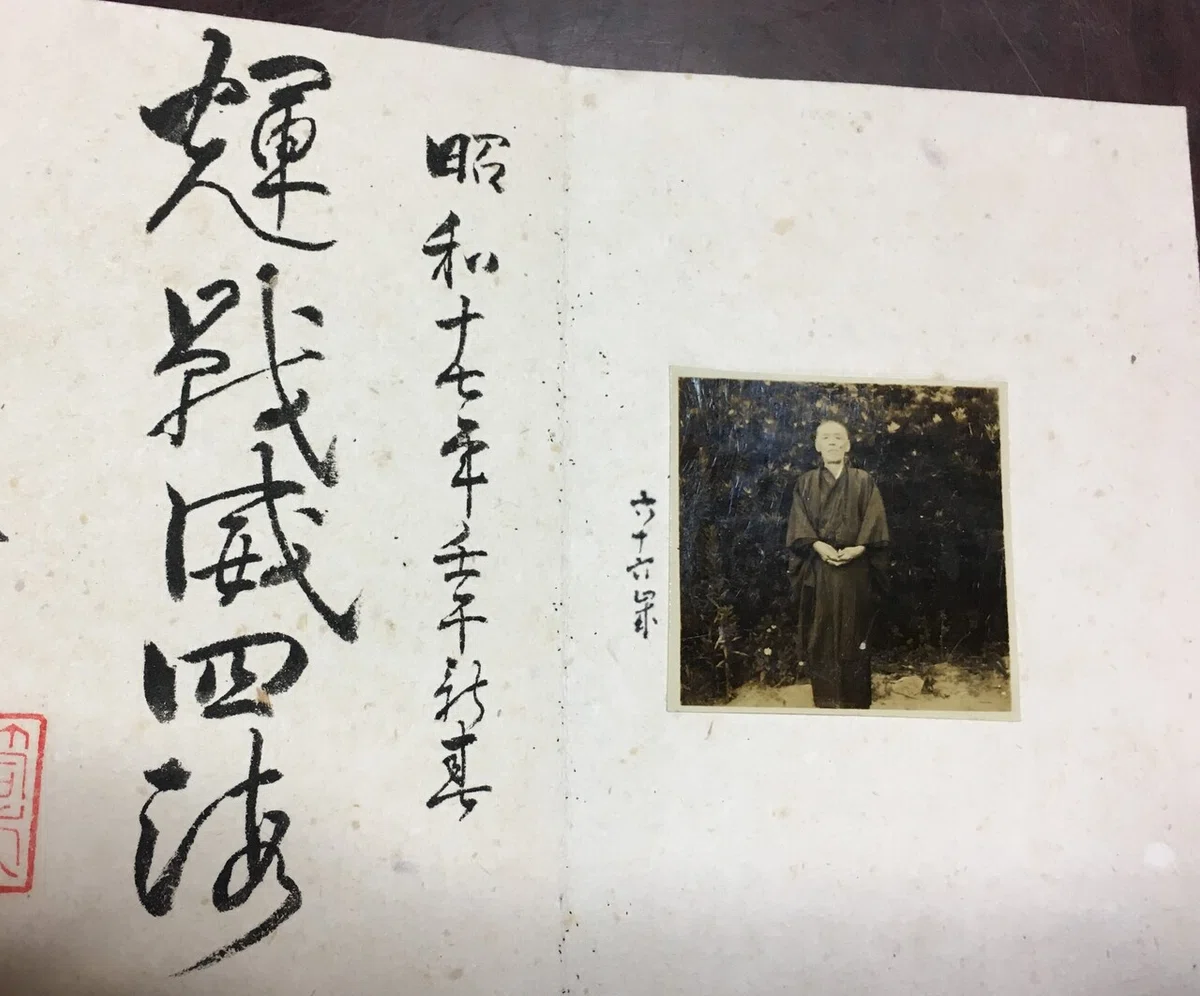 六十六歳
昭和十七年壬午新春
輝戰威四海